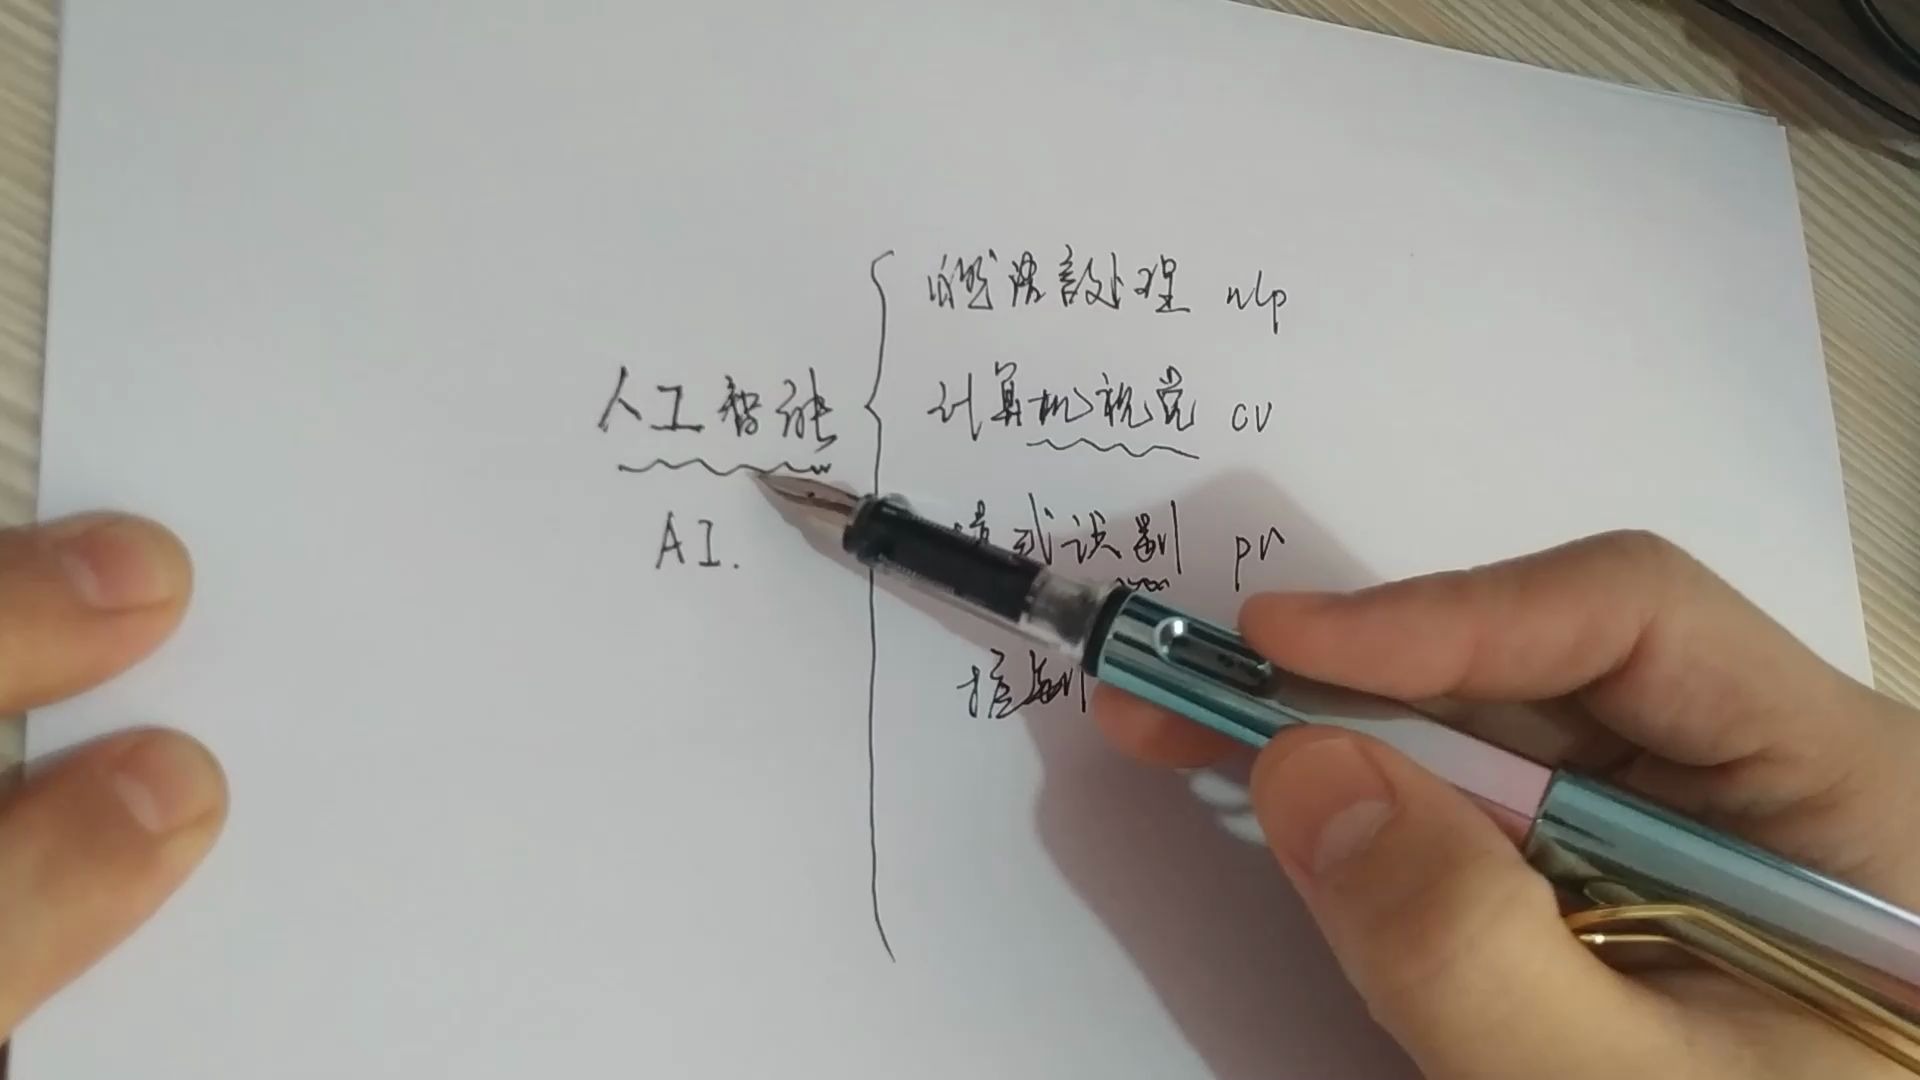 人工智能
AI.
自然语言处理 nlp
计算机视觉 cv
模式识别 pr
控制